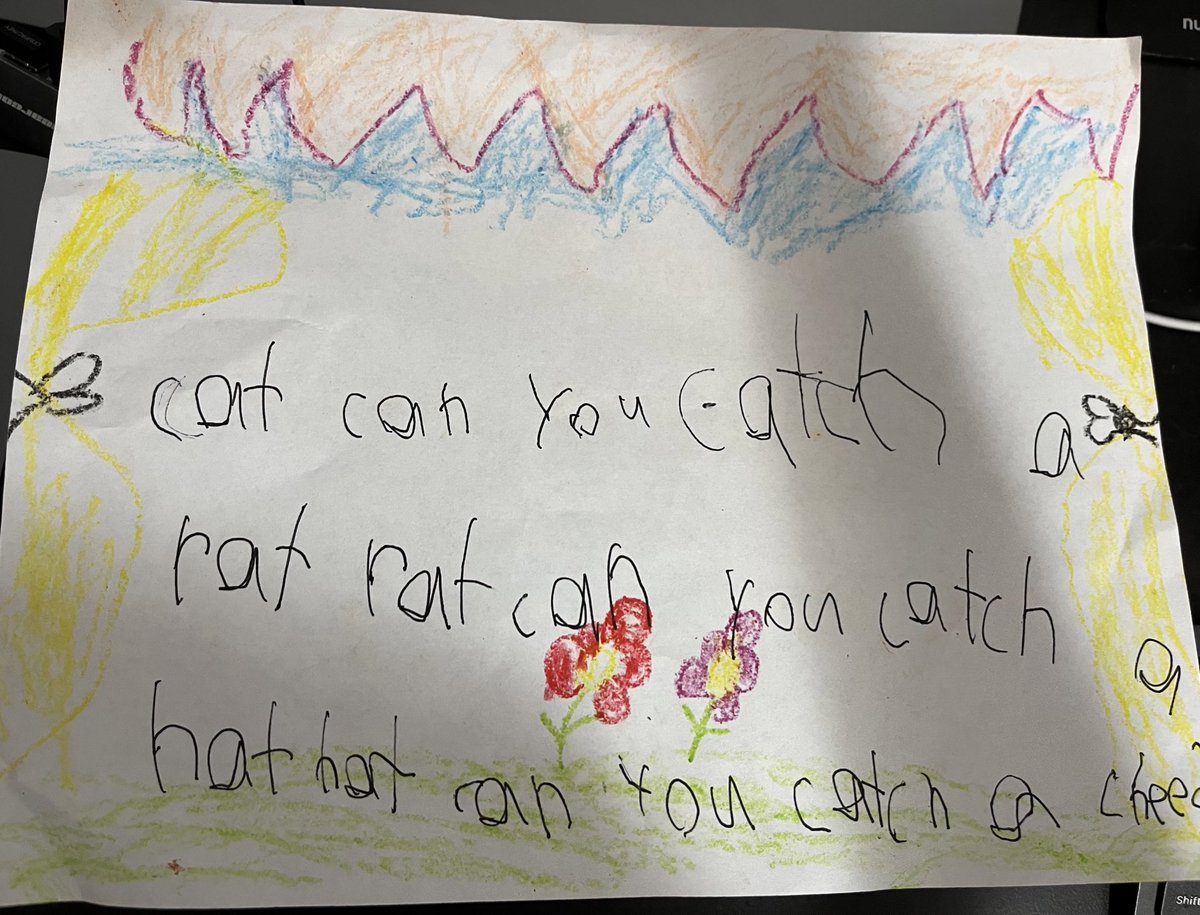 cat can you catch a
rat rat can you catch a
hat hat can you catch a
Shift